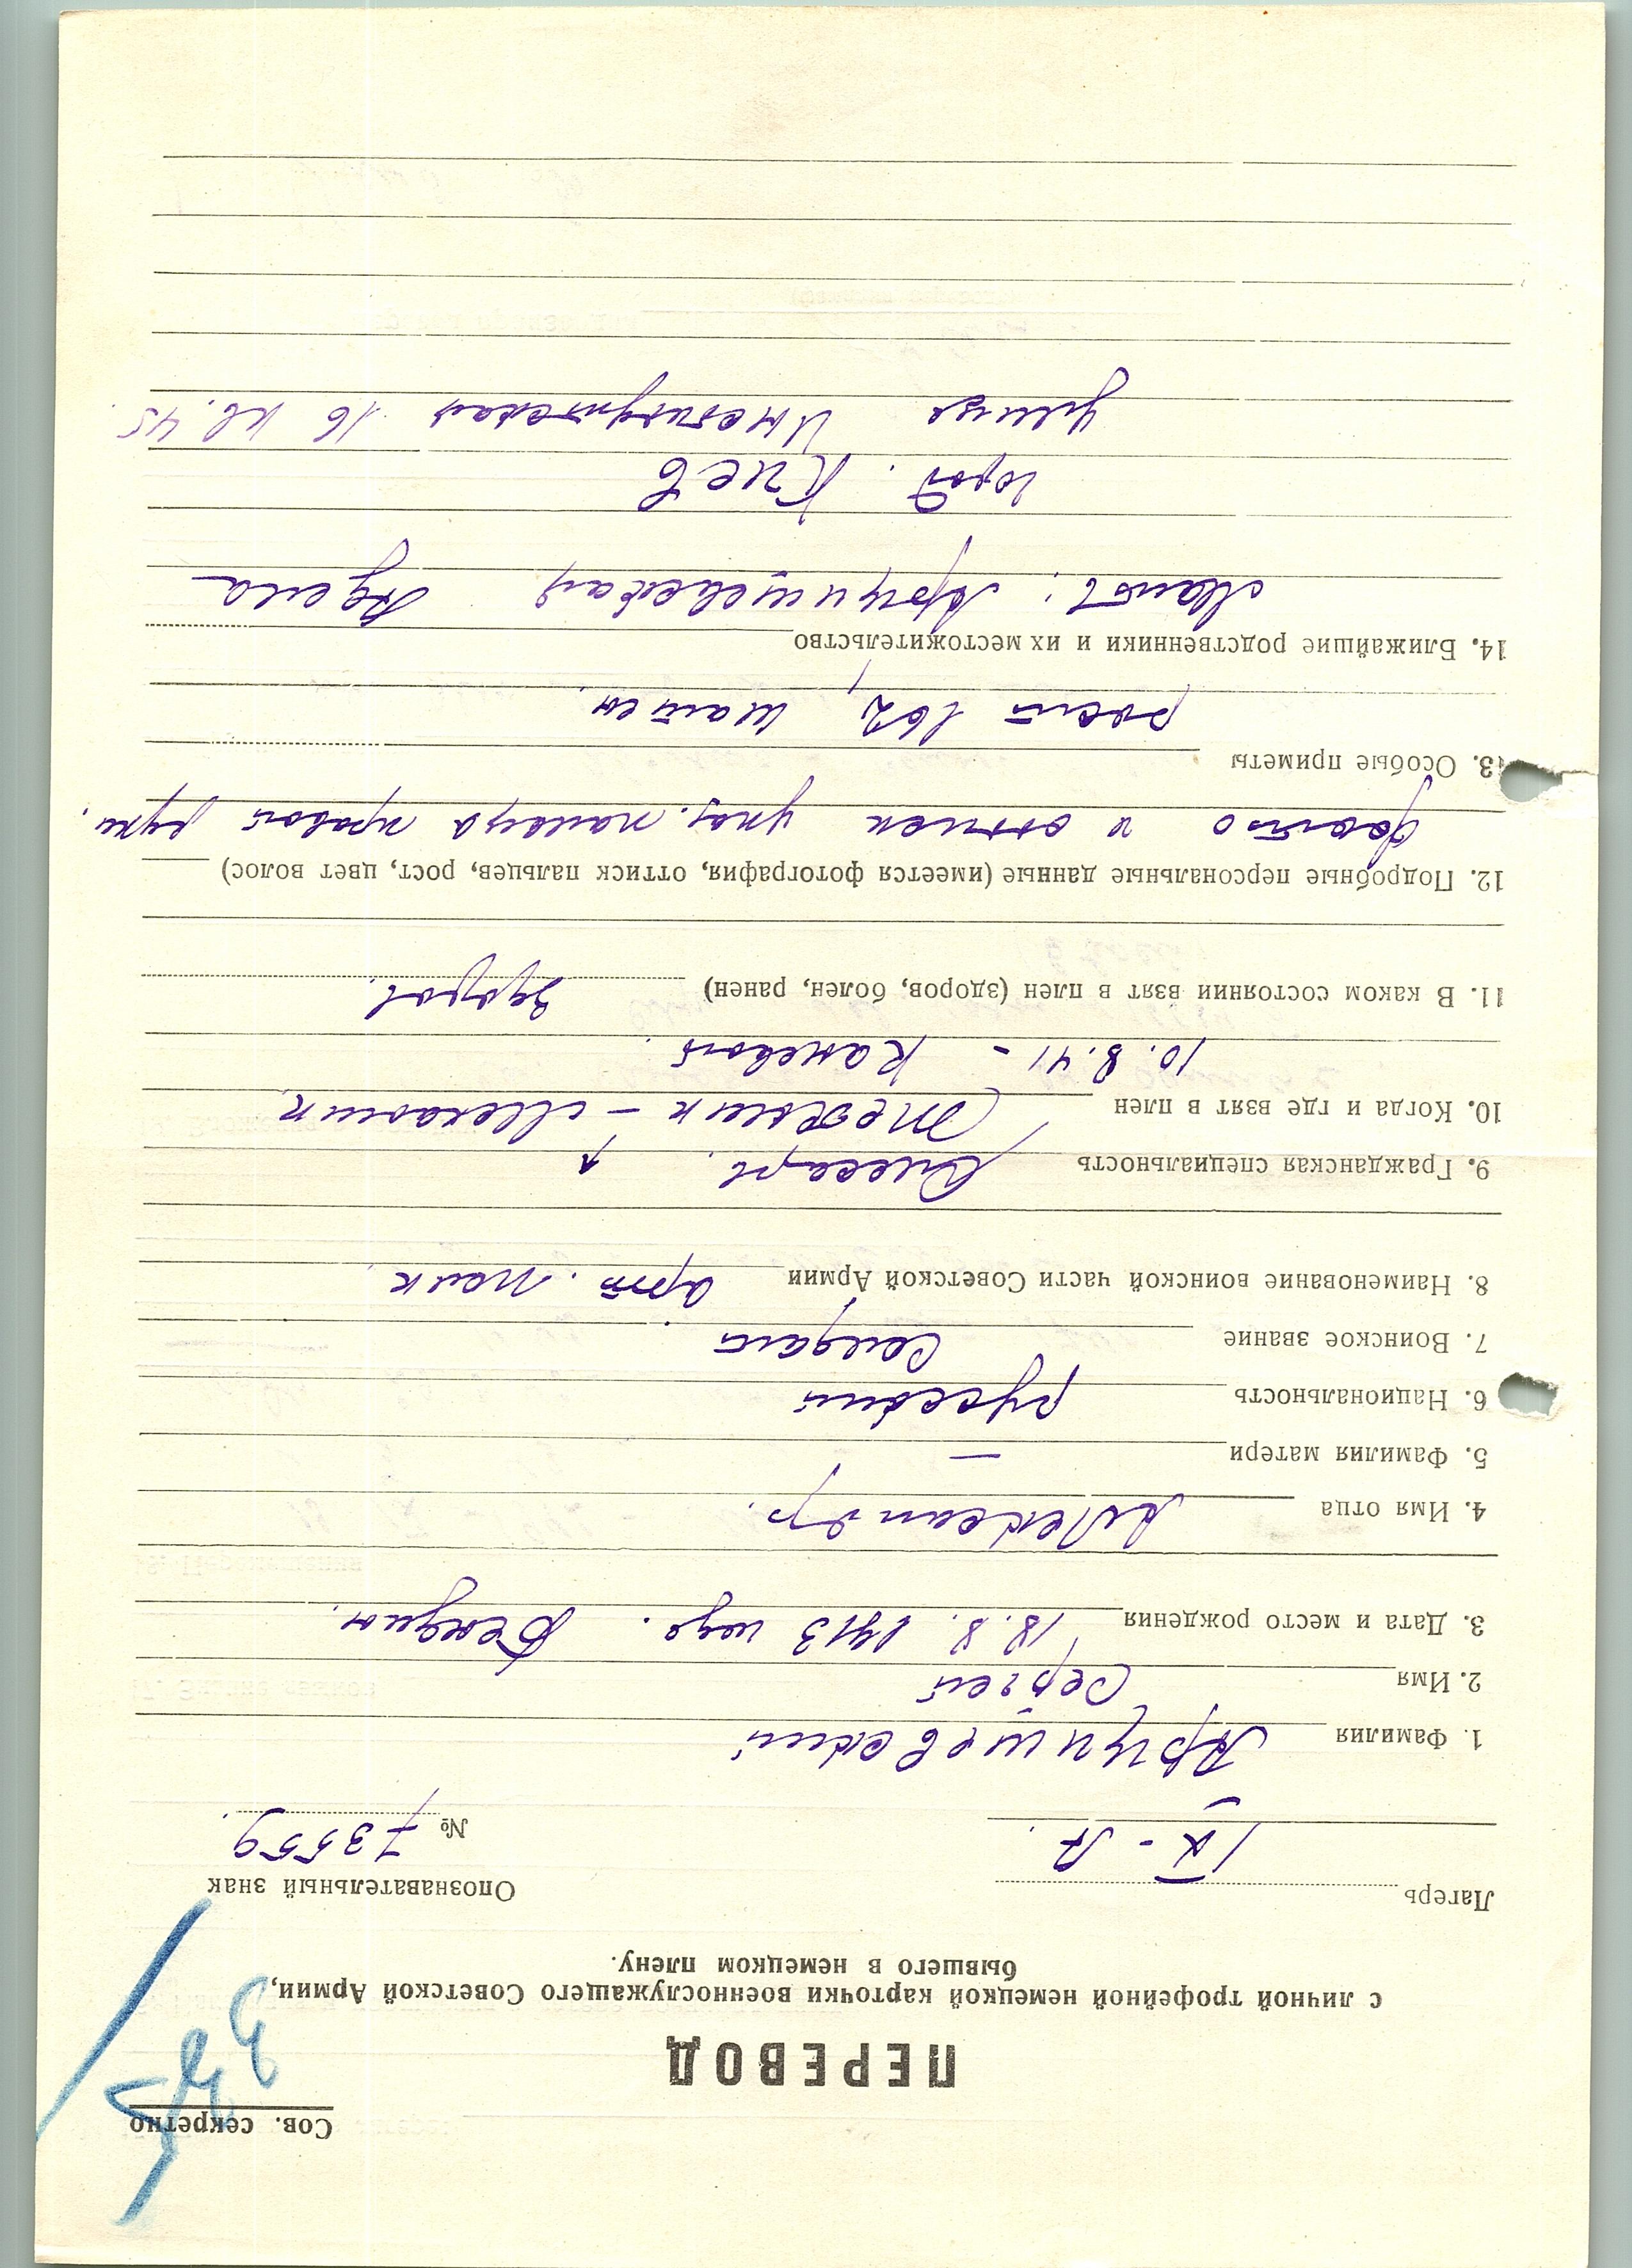 Сов. секретно
ПЕРЕВОД
с личной трофейной немецкой карточки военнослужащего Советской Армии,
бывшего в немецком плену.
Лагерь IX-А. Опознавательный знак
№ 73559.
1. Фамилия Арцишевский
2. Имя Сергей
3. Дата и место рождения 18.8.1913 года. Бендин.
4. Имя отца Александр.
5. Фамилия матери —
6. Национальность русский
7. Воинское звание Солдат
8. Наименование воинской части Советской Армии арт. полк.
9. Гражданская специальность Слесарь.
(техник - механик
10. Когда и где взят в плен
10.8.41 - Канев
11. В каком состоянии взят в плен (здоров, болен, ранен) Здоров.
12. Подробные персональные данные (имеется фотография, оттиск пальцев, рост, цвет волос)
фото и оттиск указ. пальца правой руки.
13. Особые приметы
рост 162, шатен.
14. Ближайшие родственники и их местожительство
Мать: Арцишевская Адела
город. Киев
улица Институтская 16 кв. 45.